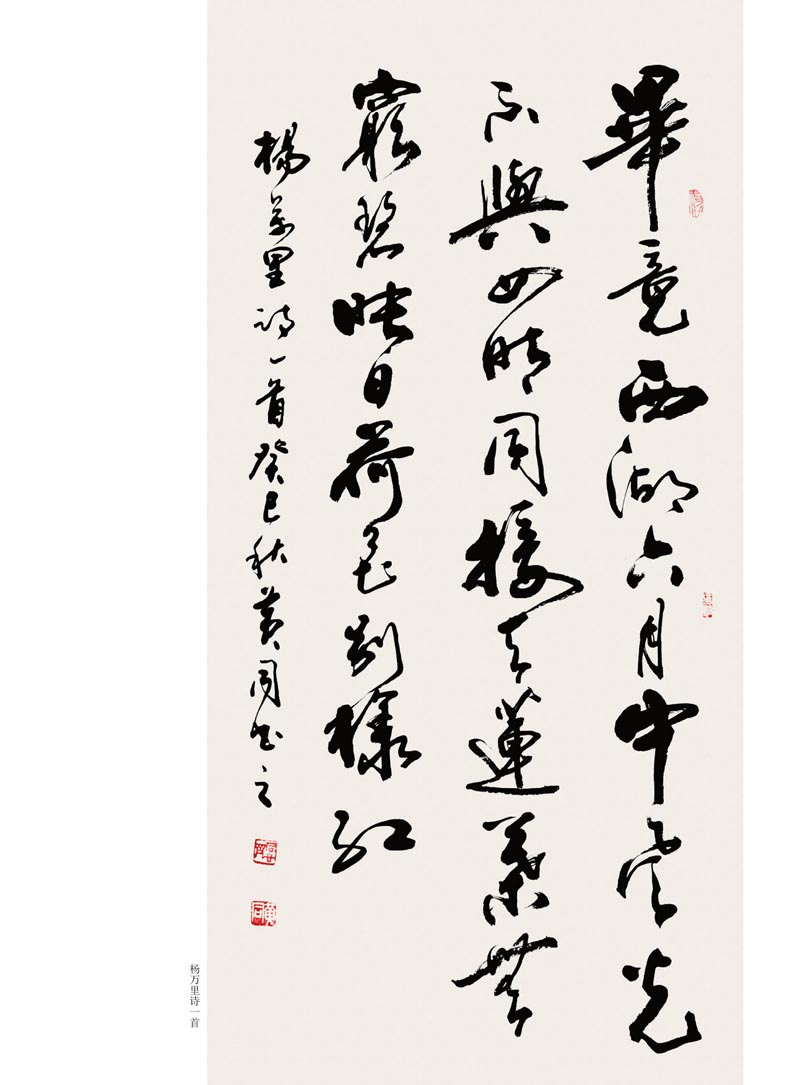 畢竟西湖六月中風光
不與四時同接天蓮葉無
窮碧映日荷花別樣紅
楊萬里詩一首癸巳秋黄同書之
杨万里诗一首